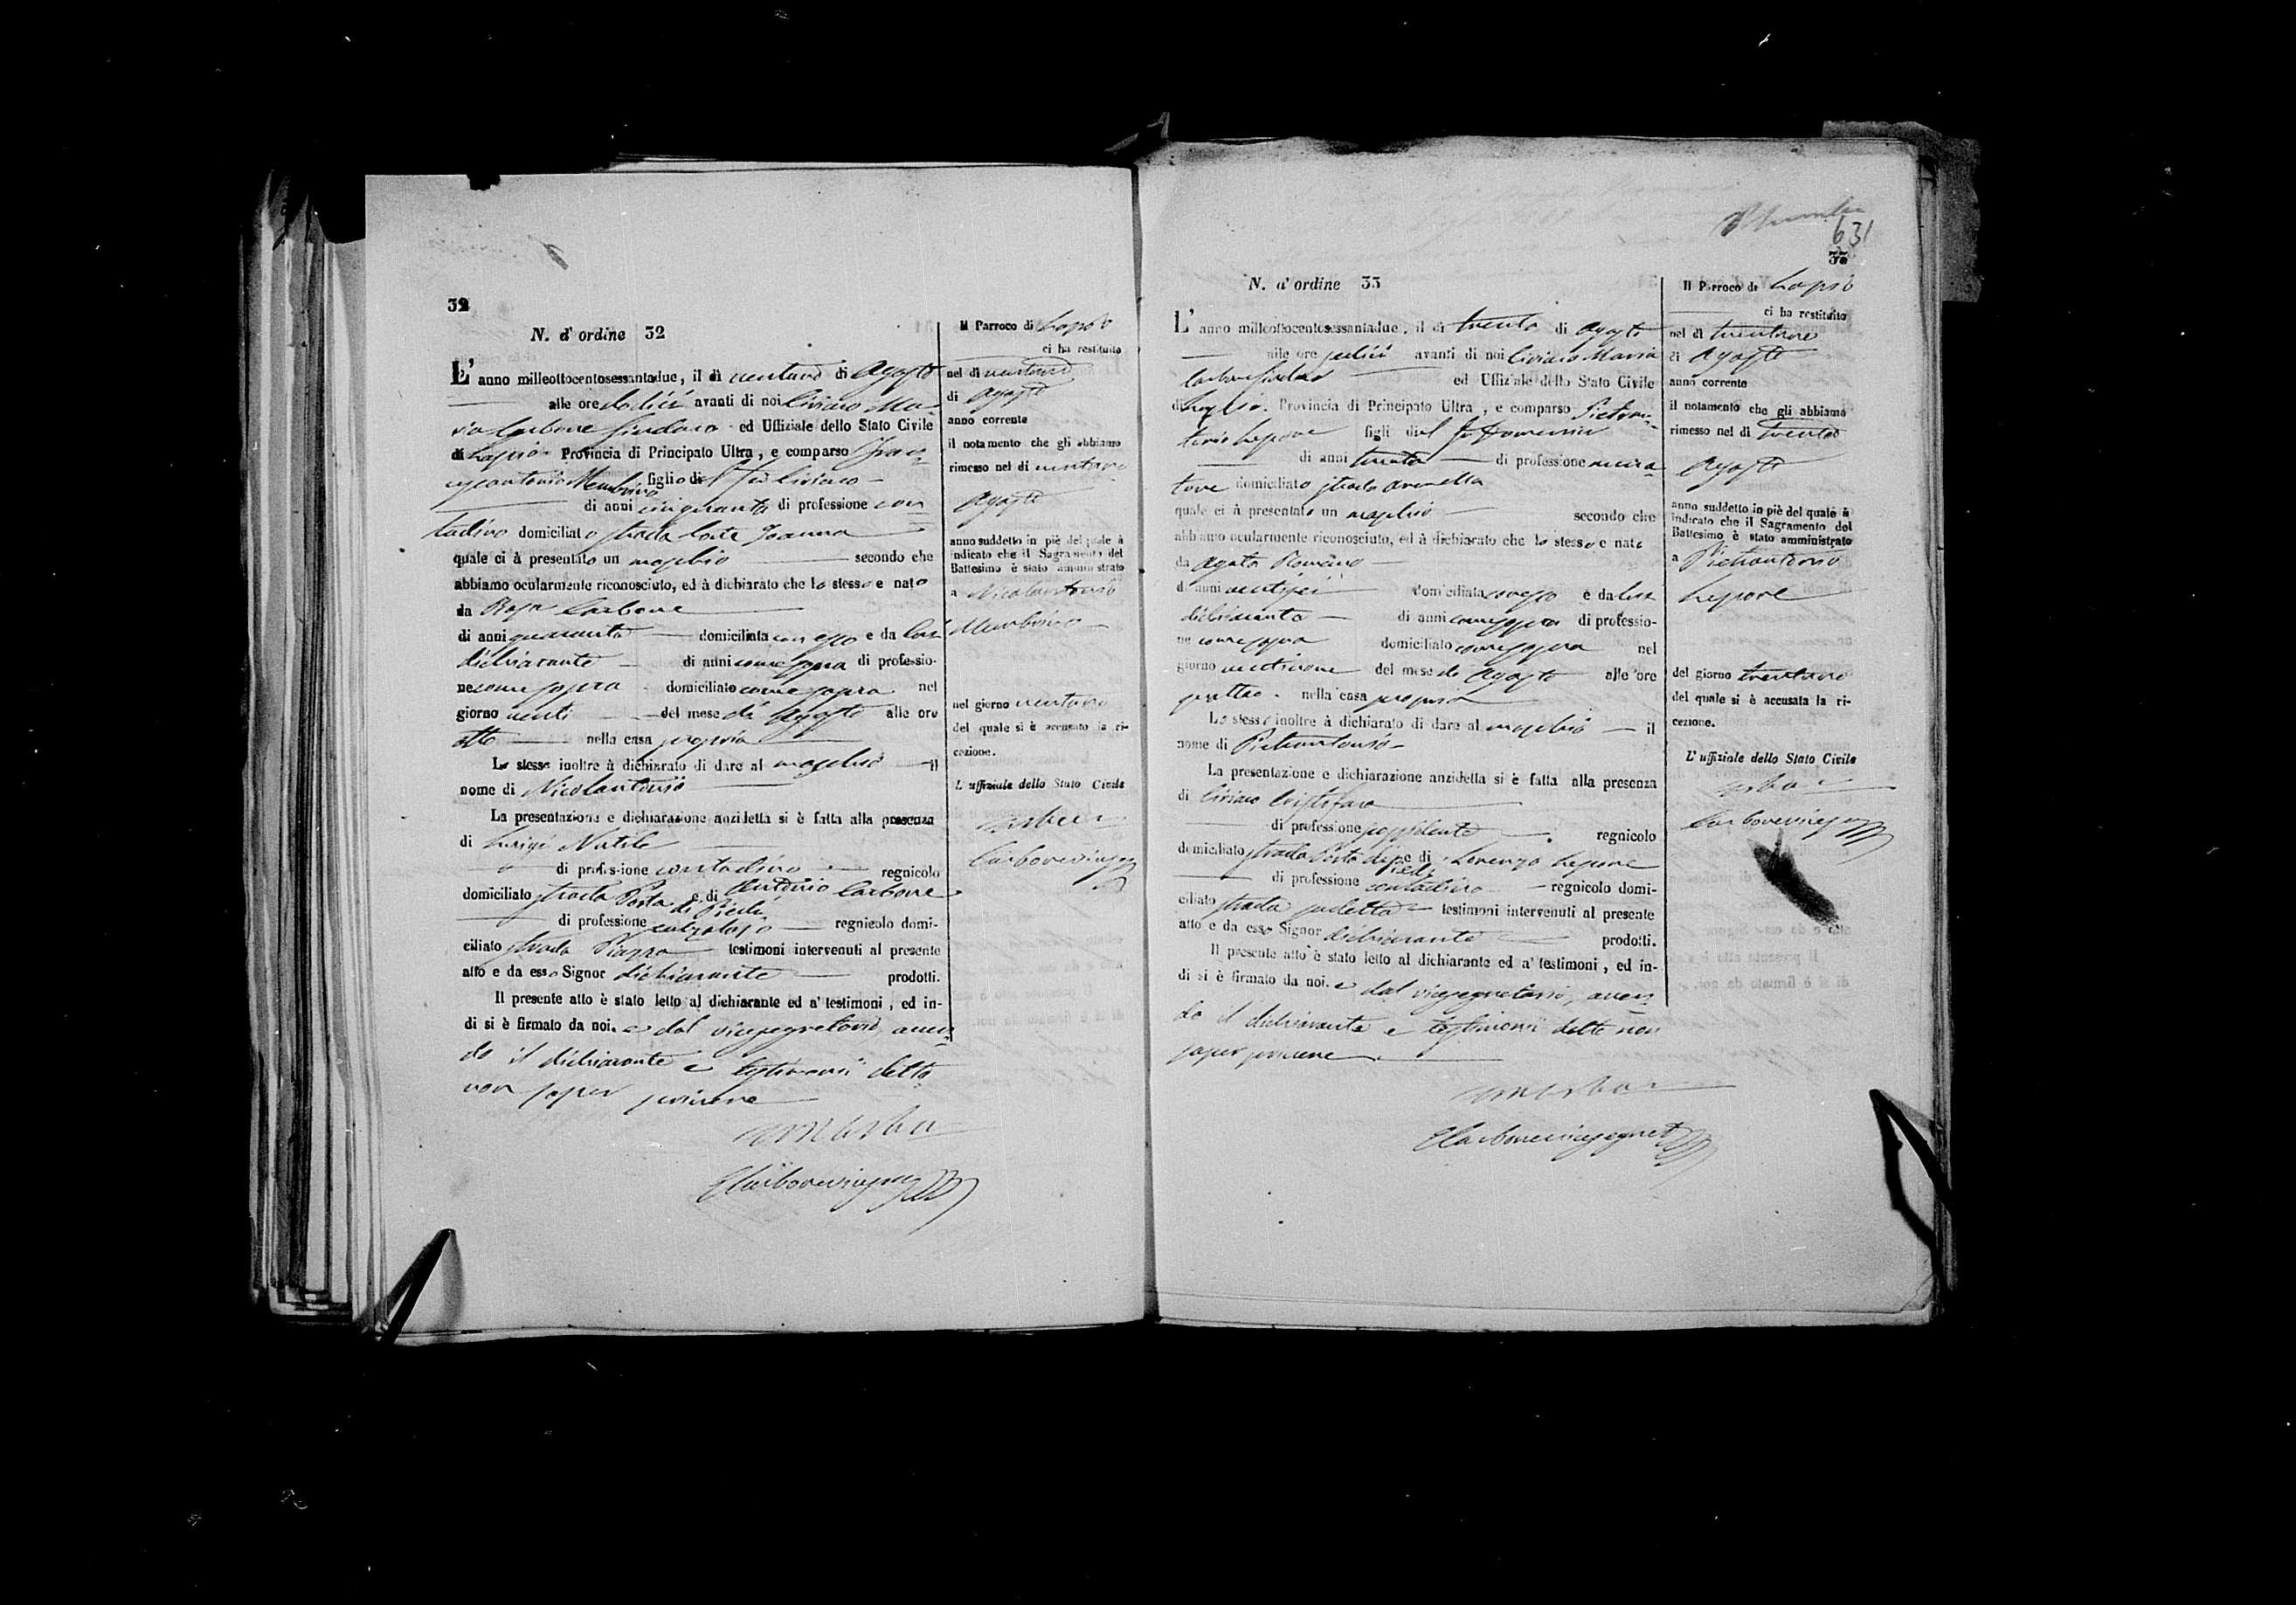 32
N. d' ordine 32
L' anno milleottocentosessantadue, il dì ventuno di Agosto
alle ore dodici avanti di noi Ciriaco Ma-
ria Carbone Sindaco ed Uffiziale dello Stato Civile
di Lapio Provincia di Principato Ultra, e comparso Fran-
cescantonio Membrino figlio del fu Ciriaco
di anni cinquanta di professione con
tadino domiciliato strada Forte Joanna
quale ci à presentato un maschio secondo che
abbiamo ocularmente riconosciuto, ed à dichiarato che lo stesso e nato
da Rosa Carbone
di anni quaranta domiciliata con esso e da esso
dichiarante di anni come sopra di professio-
ne come sopra domiciliato come sopra nel
giorno venti del mese di Agosto alle ore
otto nella casa propria
Lo stesso inoltre à dichiarato di dare al maschio il
nome di Nicolantonio
La presentazione e dichiarazione anzidetta si è fatta alla presenza
di Luigi Natile
di professione contadino regnicolo
domiciliato strada Porta di Piedi e di Antonio Carbone
di professione calzolajo regnicolo domi-
ciliato strada Piazza testimoni intervenuti al presente
atto e da esso Signor dichiarante prodotti.
Il presente atto è stato letto al dichiarante ed a' testimoni, ed in-
di si è firmato da noi. e dal vicesegretario, aven-
do il dichiarante e testimonii detto
non saper scrivere
Carbone vicesegr
Il Parroco di Lapio
ci ha restituito
nel dì ventuno
di Agosto
anno corrente
il notamento che gli abbiamo
rimesso nel dì ventuno
Agosto
anno suddetto in piè del quale à
indicato che il Sagramento del
Battesimo è stato amministrato
a Nicolantonio
Membrino
nel giorno ventuno
del quale si è accusato la ri-
cezione.
L' uffiziale dello Stato Civile
Carbone vicesegr
631
N. d' ordine 33
L' anno milleottocentosessantadue, il dì trenta di Agosto
alle ore sedici avanti di noi Ciriaco Maria
Carbone Sindaco ed Uffiziale dello Stato Civile
di Lapio. Provincia di Principato Ultra, e comparso Pietran-
tonio Lepore figli del fu Domenico
di anni trenta di professione mura-
tore domiciliato strada
quale ci à presentato un maschio secondo che
abbiamo ocularmente riconosciuto, ed à dichiarato che lo stesso e nato
da Agata Romano
di anni ventisei domiciliata con esso e da esso
dichiarante di anni come sopra di professio-
ne come sopra domiciliato come sopra nel
giorno ventinove del mese di Agosto alle ore
quattro nella casa propria
Lo stesso inoltre à dichiarato di dare al maschio il
nome di Pietrantonio
La presentazione e dichiarazione anzidetta si è fatta alla presenza
di Ciriaco Cristofaro
di professione possidente regnicolo
domiciliato strada Porta di Piedi e di Lorenzo Lepore
di professione contadino regnicolo domi-
ciliato strada testimoni intervenuti al presente
atto e da esso Signor dichiarante prodotti.
Il presente atto è stato letto al dichiarante ed a' testimoni, ed in-
di si è firmato da noi. e dal vicesegretario, aven-
do il dichiarante e testimonii detto non
saper scrivere
Carbone vicesegret
Il Parroco di Lapio
ci ha restituito
nel dì trentuno
di Agosto
anno corrente
il notamento che gli abbiamo
rimesso nel dì trenta
Agosto
anno suddetto in piè del quale à
indicato che il Sagramento del
Battesimo è stato amministrato
a Pietrantonio
Lepore
del giorno trentuno
del quale si è accusata la ri-
cezione.
L' uffiziale dello Stato Civile
Carbone vicesegr